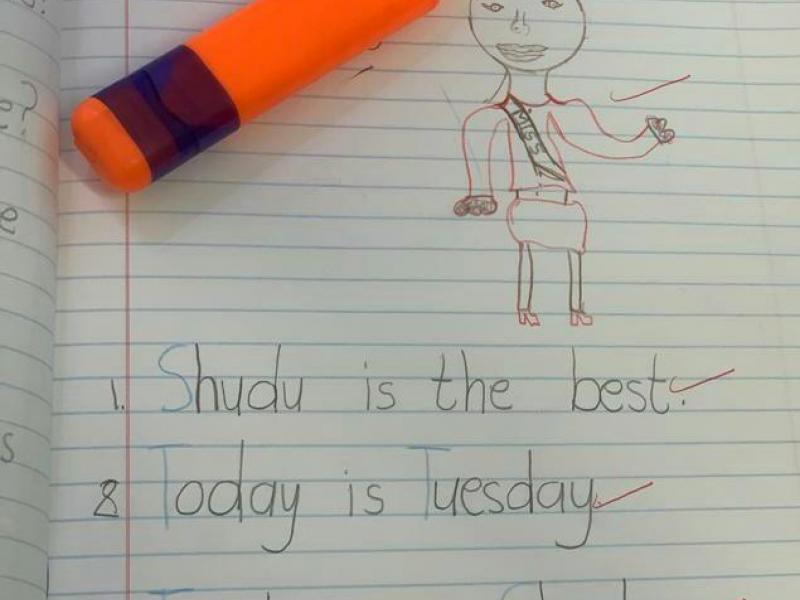 MISS
1. Shudu is the best.
8 Today is Tuesday.